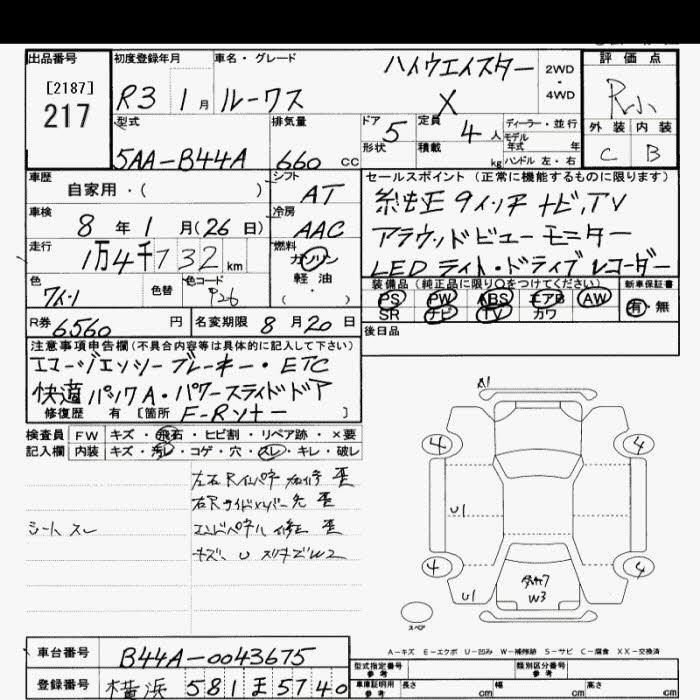 出品番号 初度登録年月 車名・グレード ハイウエイスター 2WD・4WD 評価点
[2187]
217 R3 1月 ルークス X R小
型式 排気量 ドア 5 定員 4人 ディーラー・並行 外装 内装
形状 積載 kg モデル年式 年式 ハンドル 左・右 C B
5AA-B44A 660 cc
車歴 自家用・( ) シフト AT セールスポイント (正常に機能するものに限ります)
車検 8年1月(26日) 冷房 AAC 純正9インチナビ,TV
走行 1万4千732km 燃料 ガソリン アラウンドビューモニター
軽油 LEDライト・ドライブレコーダー
色 色替 色コード ( ・ ) 装備品(純正品に限り○をつけてください) 新車保証書
PS PW ABS エアB AW 有・無
SR ナビ TV カワ
R券 6560円 名変期限 8月20日 後日品
注意事項申告欄(不具合内容等は具体的に記入して下さい)
エマージェンシーブレーキ・ETC
快適パックA・パワースライドドア
修復歴 有 [箇所 F-Rンナー ]
検査員 FW キズ・飛石・ヒビ割・リペア跡・×要
記入欄 内装 キズ・汚レ・コゲ・穴・スレ・キレ・破レ
シート スレ
エンドパネル 修正 歪
キズ、U スリキズW2
A1
4 4
U1
4 4
U1 W3
スペア
A-キズ E-エクボ U-凹み W-補修跡 S-サビ C-腐食 XX-交換済
車台番号 B44A-0043675 型式指定番号 参考 類別区分番号 参考
登録番号 横浜 581 ま 5740 車庫証明用 参考 長さ cm 幅 cm 高さ cm